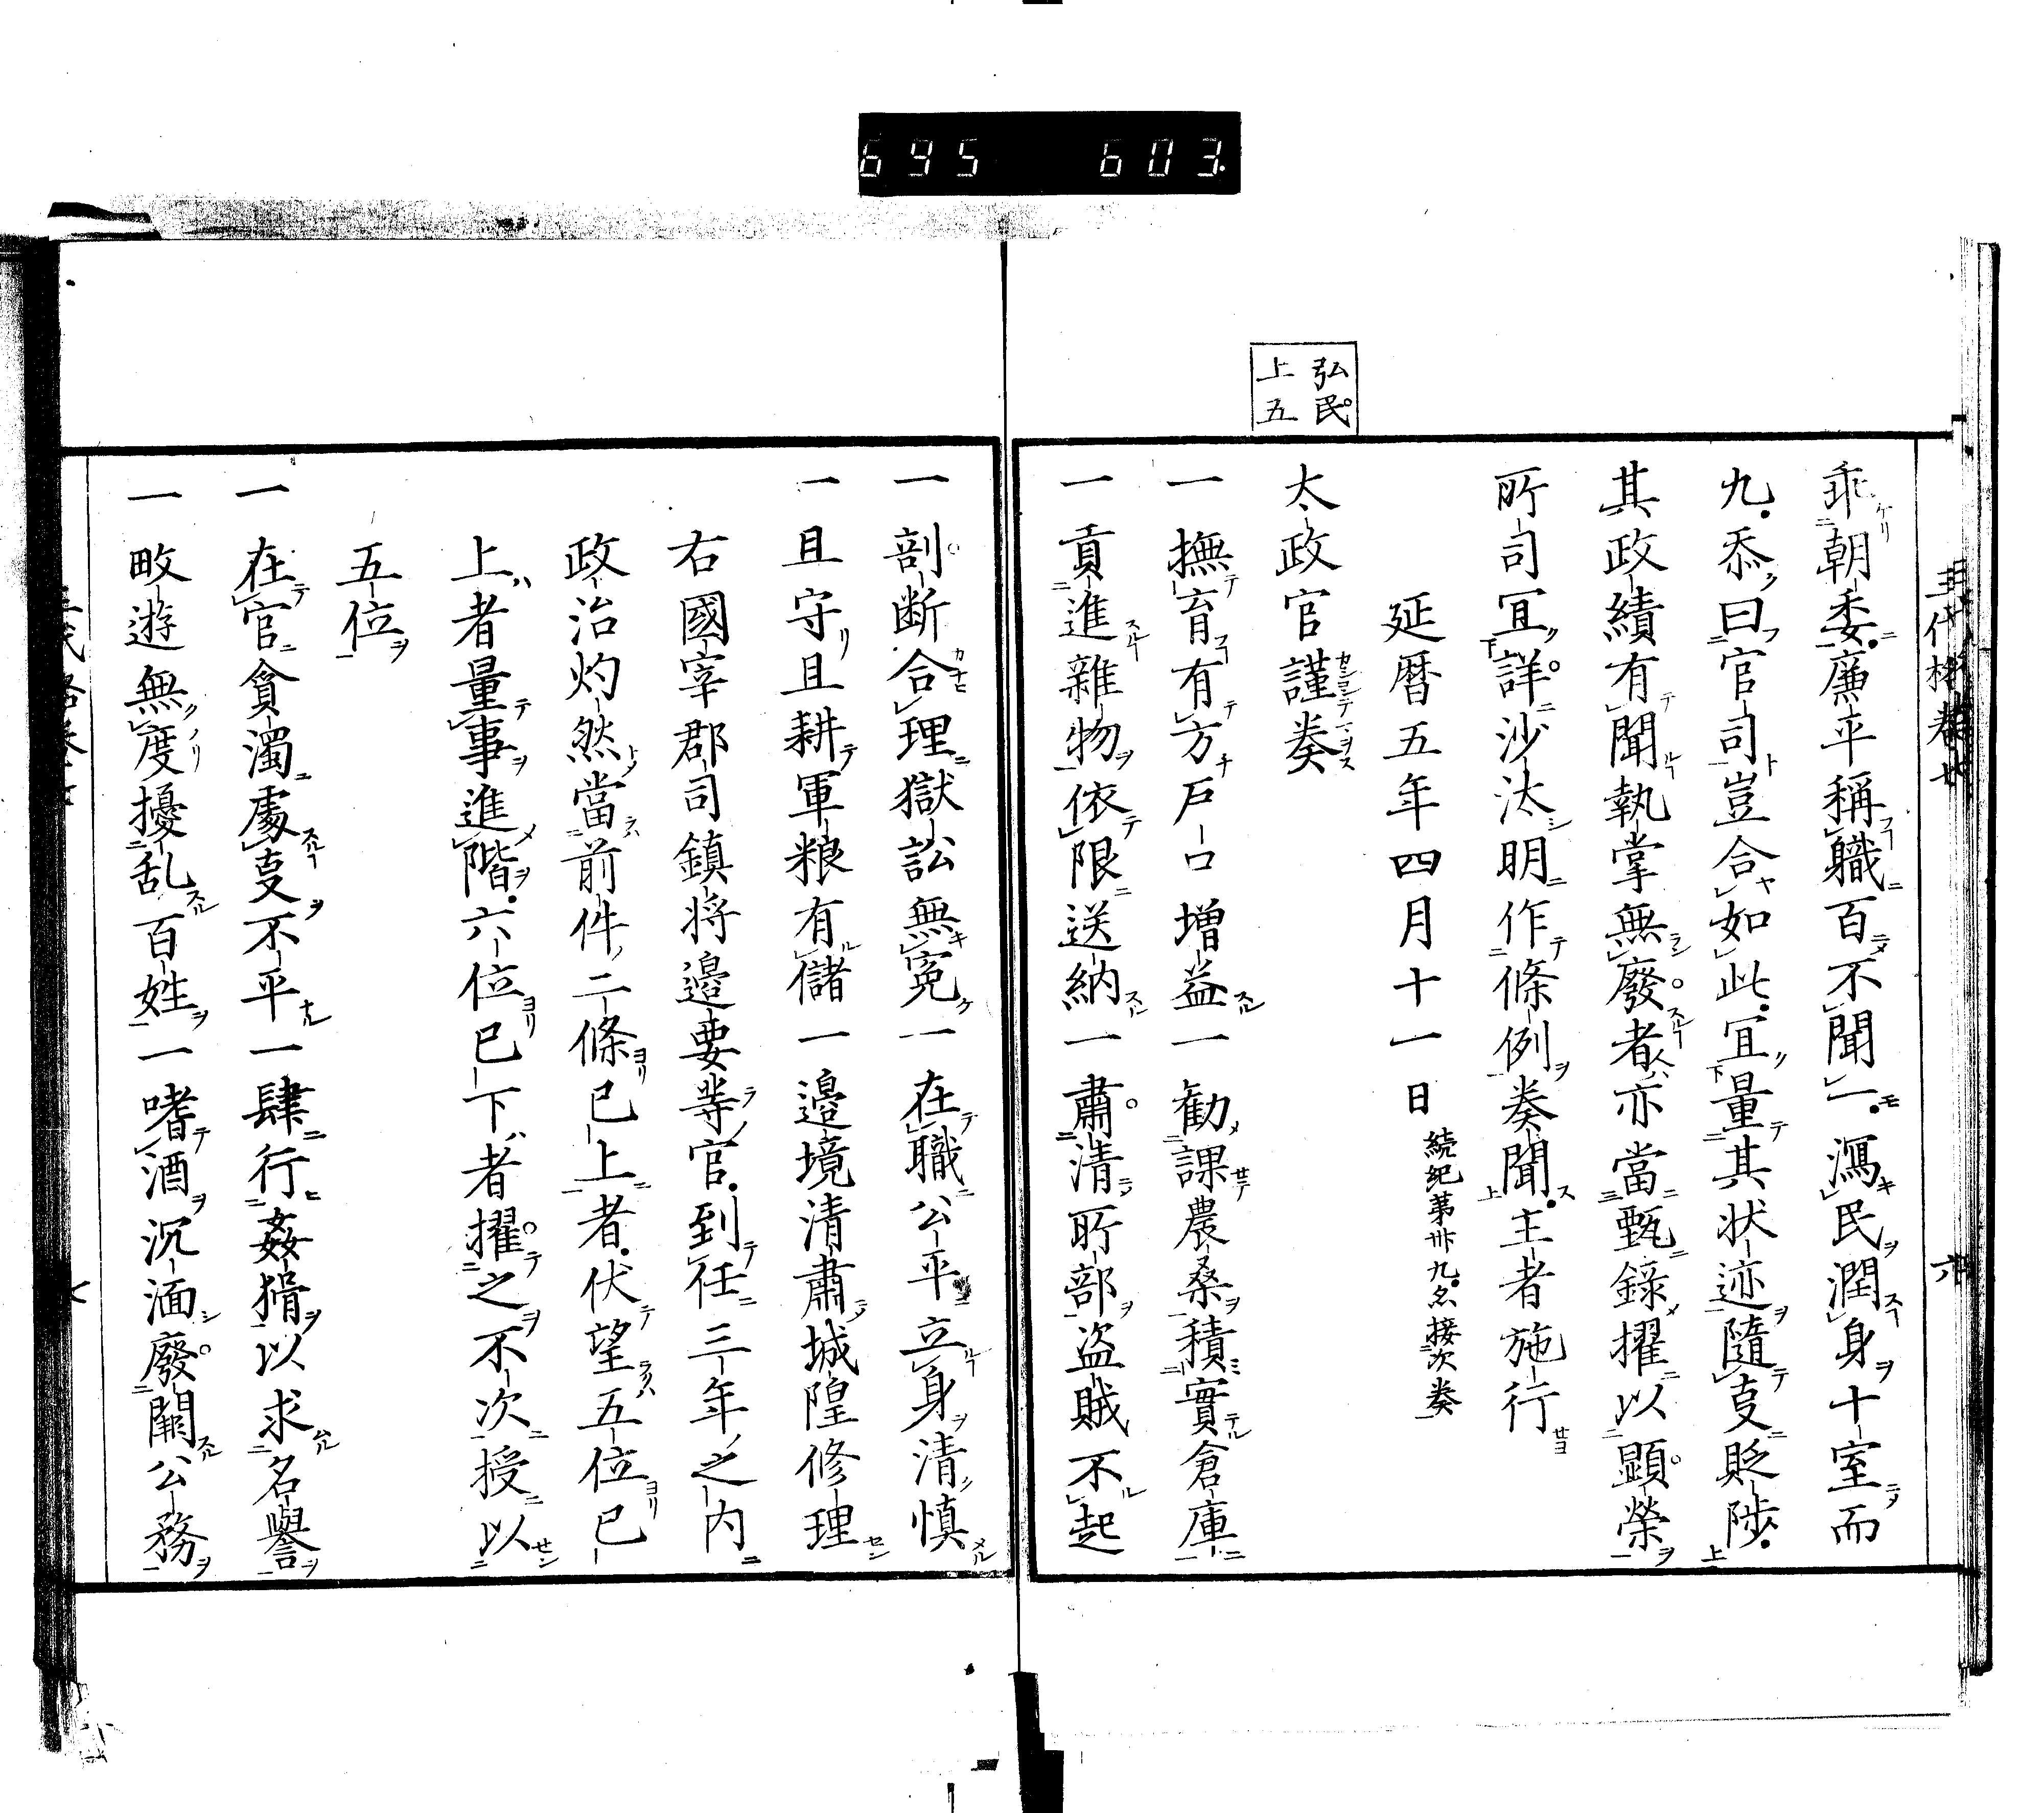 695 603.
弘民
上五
乖朝委廉平稱職百不聞一澆民潤身十室而
九忝曰官司豈合如此宜量其状迹随㕝貶陟
其政績有聞執掌無廢者亦當甄錄擢以顕榮
所司宜詳沙汰明作條例奏聞主者施行
延暦五年四月十一日 続紀第卅九
太政官謹奏
一撫育有方戸口增益一勸課農桑積實倉庫
一貢進雜物依限送納一肅清所部盗賊不起
一剖断合理獄訟無寃一在職公平立身清慎
一且守且耕軍粮有儲一邊境清肅城隍修理
右國宰郡司鎮将邊要等官到任三年之内
政治灼然當前件二條已上者伏望五位已
上者量事進階六位已下者擢之不次授以
五位
一在官貪濁處㕝不平一肆行姦猾以求名譽
一畋遊無度擾乱百姓一嗜酒沉湎廢闕公務